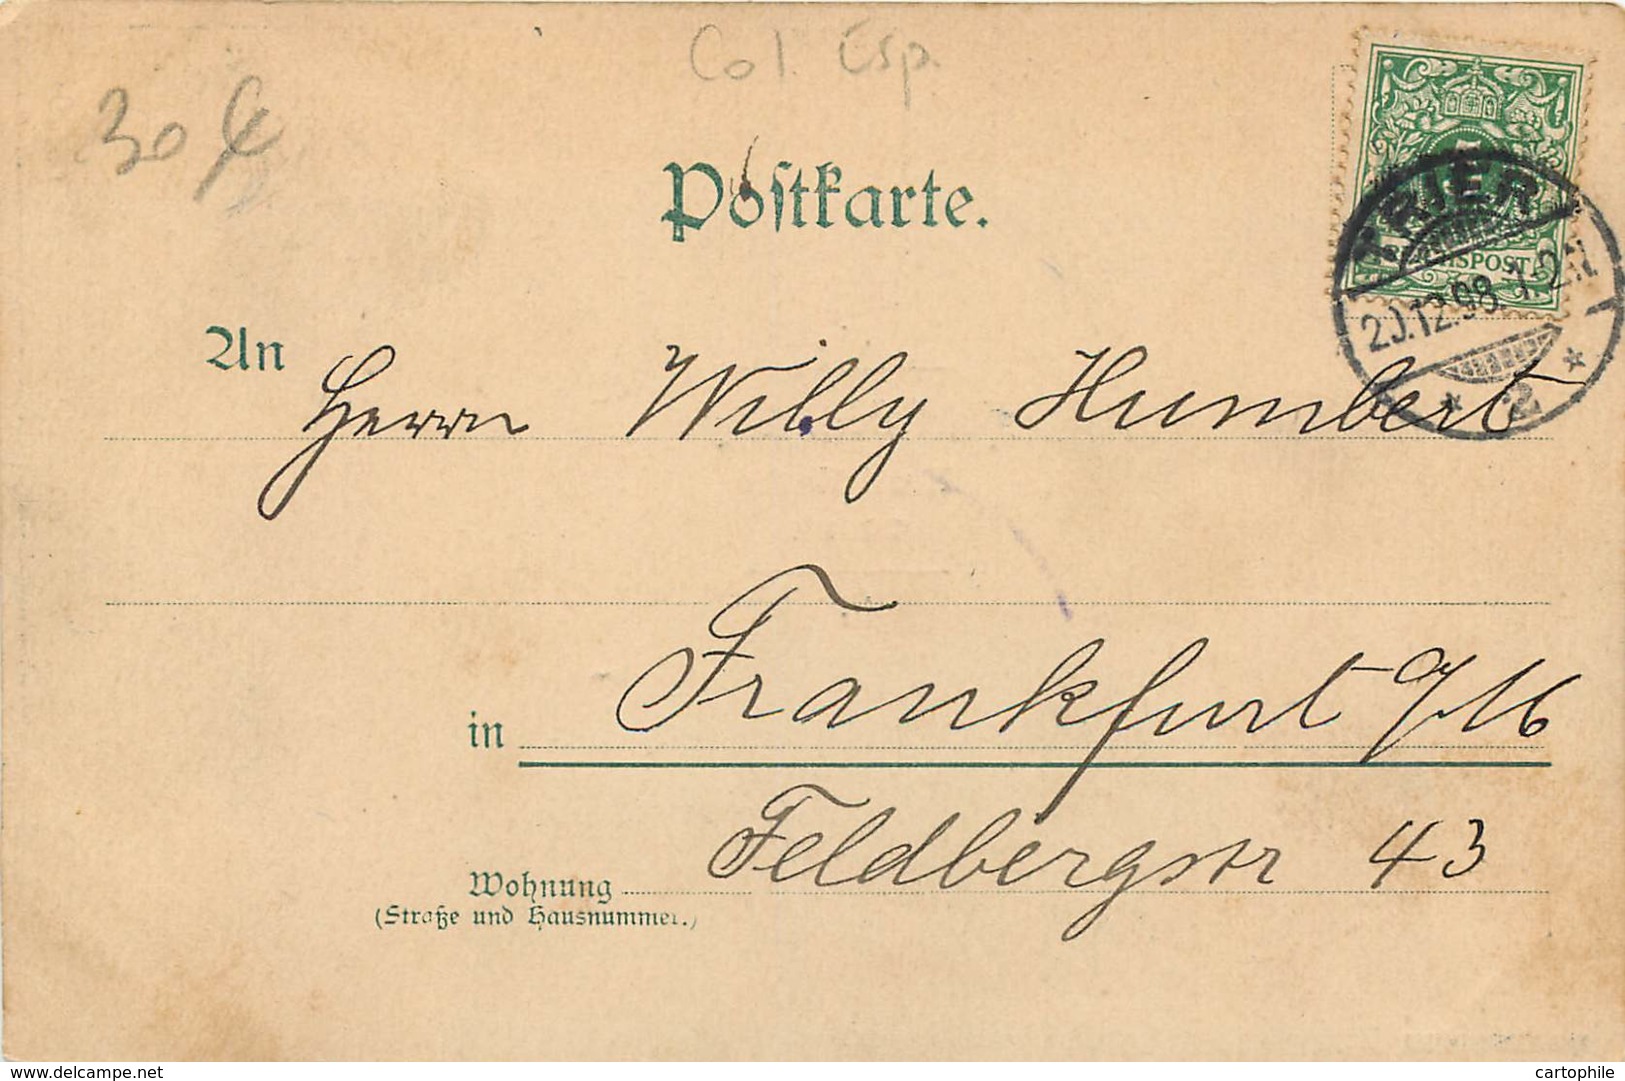 Col. Esp.
30 €
Postkarte.
REICHSPOST
TRIER
20.12.98. 1-2N.
* 2 *
An Herrn Willy Humbert
in Frankfurt a/M
Feldbergstr 43
Wohnung
(Straße und Hausnummer.)
www.delcampe.net
cartophile